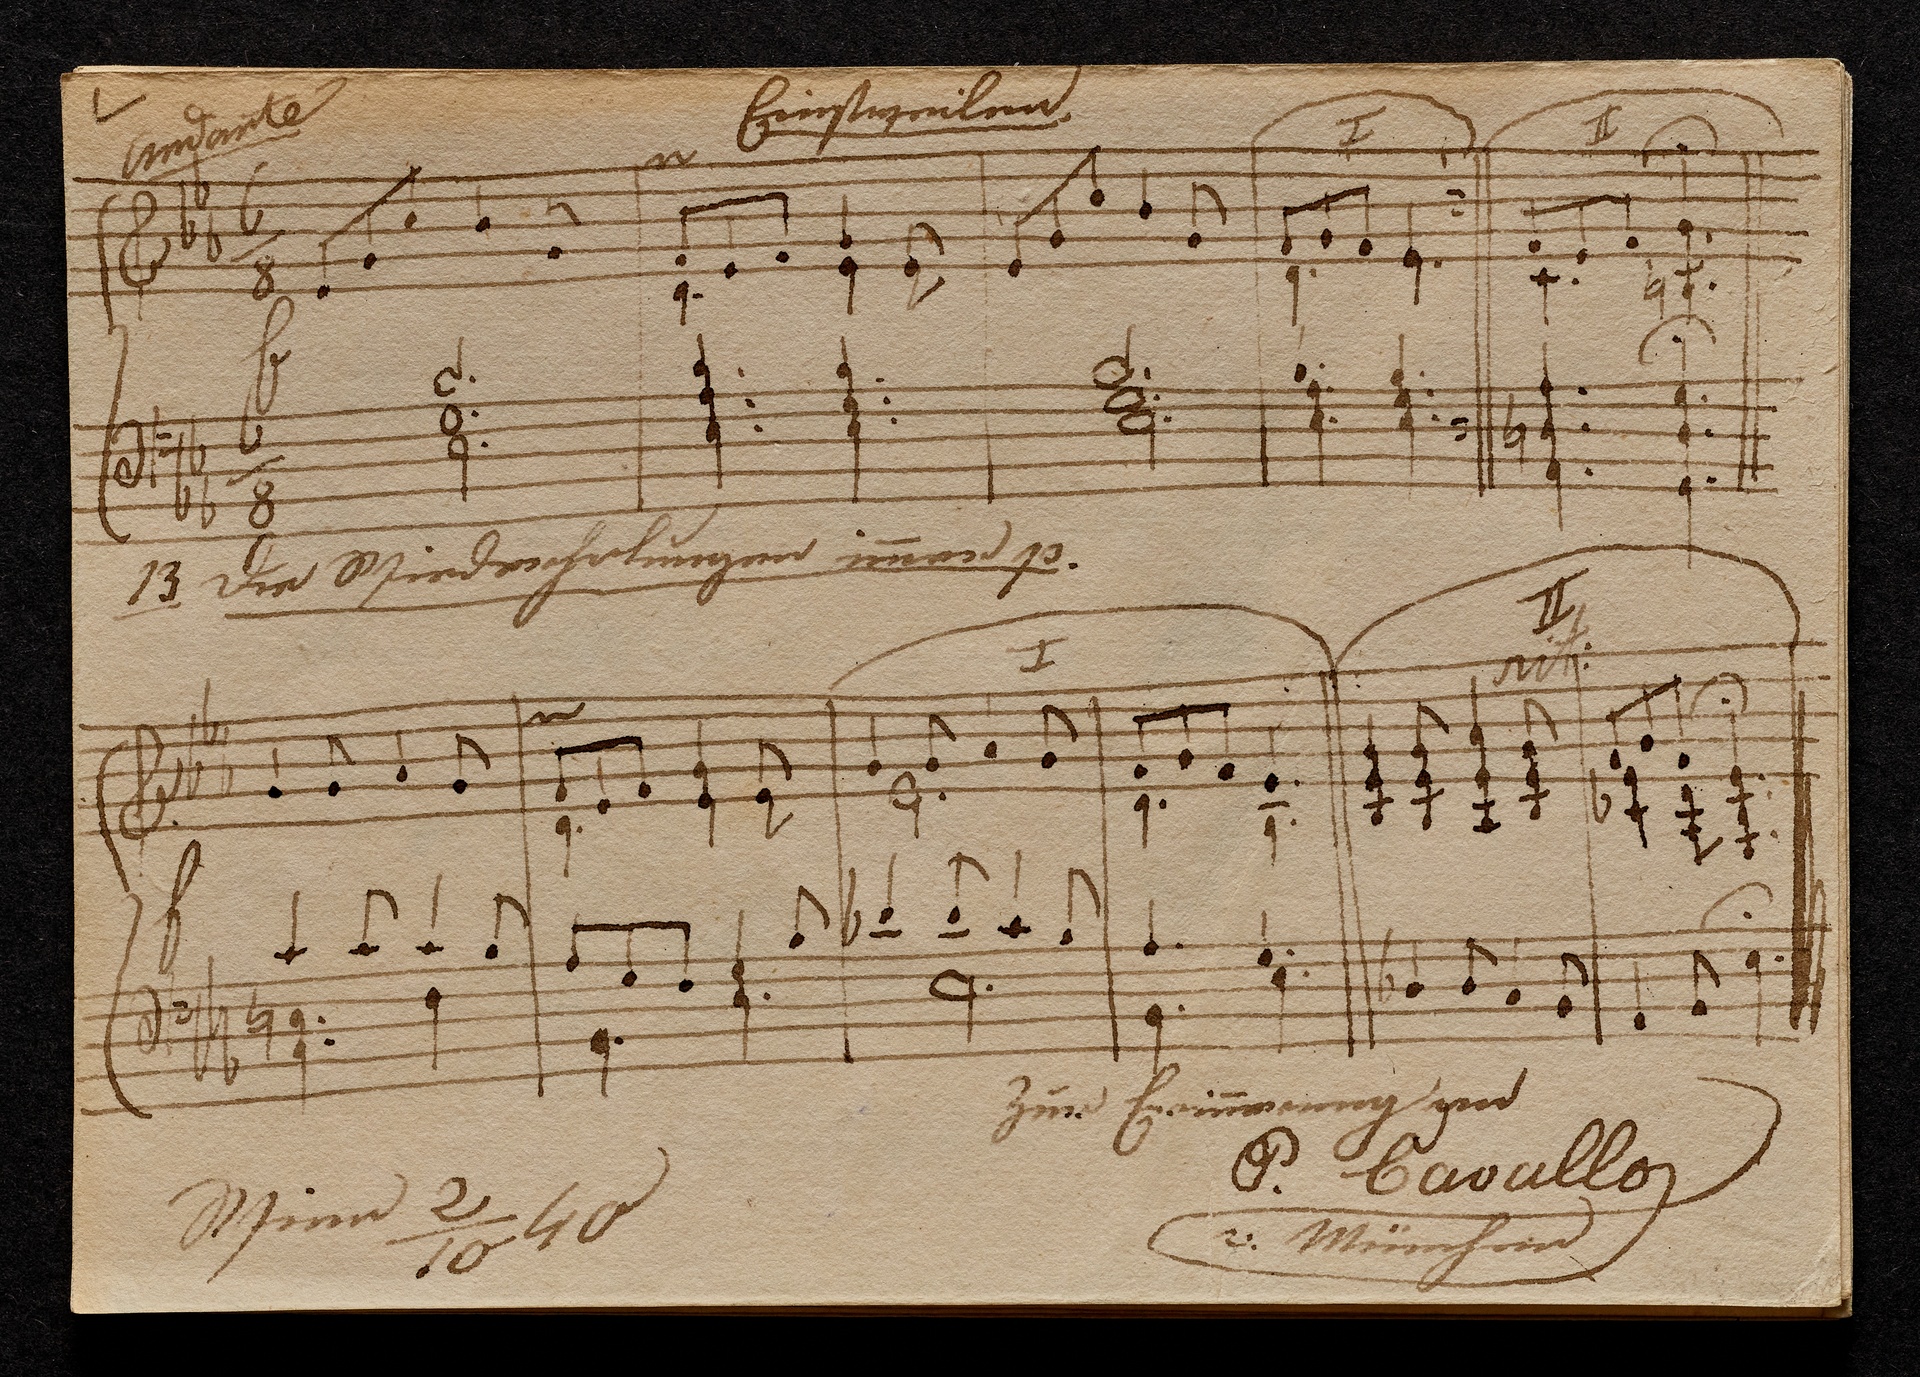 Andante
Einstweilen.
I II
6/8
f
6/8
13 Die Wiederholungen im̅er p.
I II
rit.
f
Zur Erin̅erung an
P. Cavallo
v. München
Wien 2/10 40